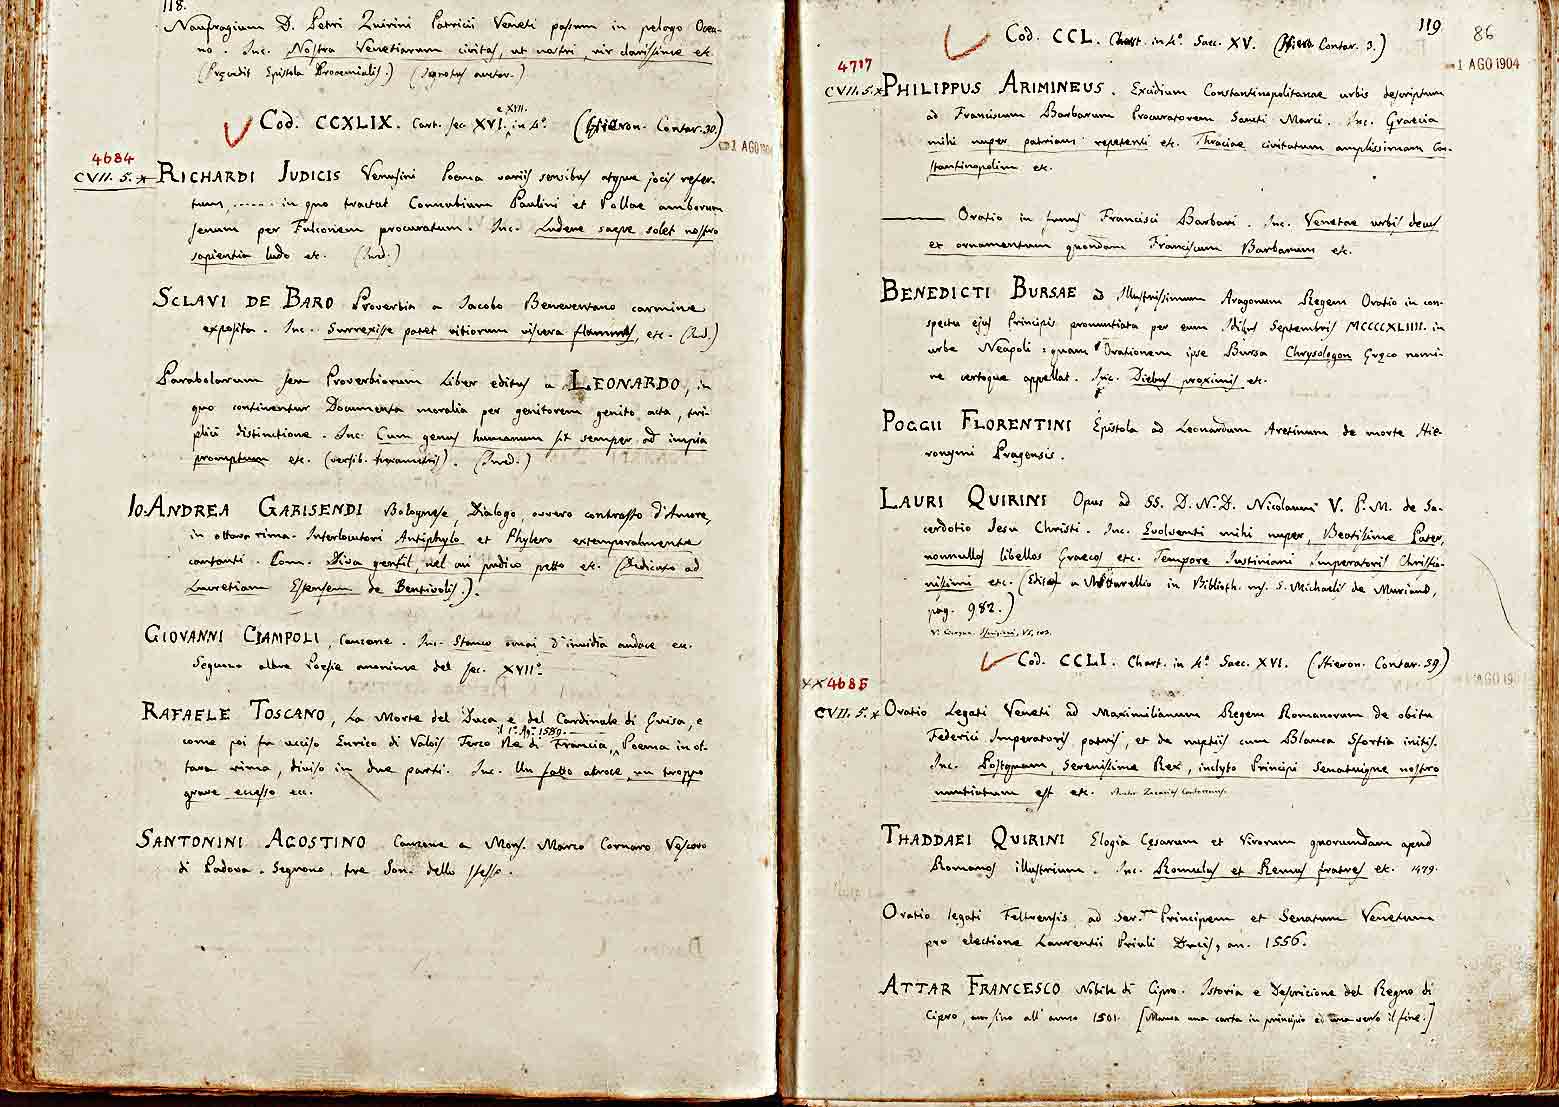 118.
Naufragium D. Petri Quirini Patricii Veneti passum in pelago Ocea-
no. Inc. Nostra Venetiarum civitas, ut nostri, vir clarissime etc
(Pręcedit Epistola Prooemialis.) (Ignotus auctor.)
e XVII.
Cod. CCXLIX. Cart. sec XVI. in 4º. (Hieron. Contar. 30.)
1 AGO 1904
4684
CVII. 5. x
RICHARDI JUDICIS Venusini Poema variis sensibus atque jocis refer-
tum, ...... in quo tractat Connubium Paulini et Pollae amborum
senum per Fulconem procuratum. Inc. Ludere saepe solet nostro
sapientia ludo etc. (Ined.)
SCLAVI DE BARO Proverbia a Jacobo Beneventano carmine
exposita. Inc. Surrexisse patet vitiorum viscera flammis, etc. (Ined.)
Parabolarum seu Proverbiorum Liber editus a LEONARDO, in
quo continentur Documenta moralia per genitorem genito acta, tri-
plici distinctione. Inc. Cum genus humanum sit semper ad impia
promptum etc. (versib. hexametris). (Ined.)
IO. ANDREA GARISENDI Bolognese, Dialogo, ovvero contrasto d'Amore,
in ottava rima. Interlocutori Antiphylo et Phylero extemporalmente
cantanti. Com. Diva gentil, nel cui pudico petto etc. (Dedicato ad
Lucretiam Estensem de Bentivolis.).
GIOVANNI CIAMPOLI, Canzone. Inc. Stanco omai d'invidia audace ec.
Seguono altre Poesie anonime del sec. XVIIº
RAFAELE TOSCANO, La Morte del Duca, e del Cardinale di Guisa, e
il 1º Agº 1589.
come poi fu ucciso Enrico di Valois Terzo Re di Francia, Poema in ot-
tava rima, diviso in due parti. Inc. Un fatto atroce, un troppo
grave eccesso ec.
SANTONINI AGOSTINO Canzone a Mons. Marco Cornaro Vescovo
di Padova. Seguono tre Son. dello stesso.
119
86
1 AGO 1904
Cod. CCL. Chart. in 4º. Saec. XV. (Hieron Contar. 3.)
4717
CVII. 5. x
PHILIPPUS ARIMINEUS. Excidium Constantinopolitanae urbis descriptum
ad Franciscum Barbarum Procuratorem Sancti Marci. Inc. Graecia
mihi nuper patriam repetenti etc. Thraciae civitatum amplissimam Con-
stantinopolim etc.
——— Oratio in funus Francisci Barbari. Inc. Venetae urbis decus
et ornamentum quondam Franciscum Barbarum etc.
BENEDICTI BURSAE ad Illustrissimum Aragonum Regem Oratio in con-
spectu ejus Principis pronuntiata per eum Idibus Septembris MCCCCXLIIII. in
urbe Neapoli: quam Orationem ipse Bursa Chrysologon Gręco nomi-
ne certoque appellat. Inc. Diebus proximis etc.
POGGII FLORENTINI Epistola ad Leonardum Aretinum de morte Hie-
ronymi Pragensis.
LAURI QUIRINI Opus ad SS. D. N. D. Nicolaum V. P. M. de Sa-
cerdotio Jesu Christi. Inc. Evolventi mihi nuper, Beatissime Pater,
nonnullos libellos Graecos etc. Tempore Justiniani Imperatoris Christia-
nissimi etc. (Edit a Mittarellio in Biblioth. ms. S. Michaelis de Muriano,
pag. 982.)
Cod. CCLI. Chart. in 4º Saec. XVI. (Hieron. Contar. 59)
xx 4685
CVII. 5. x
Oratio Legati Veneti ad Maximilianum Regem Romanorum de obitu
Federici Imperatoris patris, et de nuptiis cum Blanca Sfortia initis.
Inc. Postquam, Serenissime Rex, inclyto Principi Senatuique nostro
nuntiatum est etc.
THADDAEI QUIRINI Elogia Cęsarum et Virorum quorumdam apud
Romanos illustrium. Inc. Romulus et Remus fratres etc. 1479.
Oratio legati Feltrensis ad Ser.mm Principem et Senatum Venetum
pro electione Laurentii Priuli Ducis, an. 1556.
ATTAR FRANCESCO Nobile di Cipro. Istoria e Descrizione del Regno di
Cipro, sino all' anno 1501. [Manca una carta in principio ed una verso il fine.]